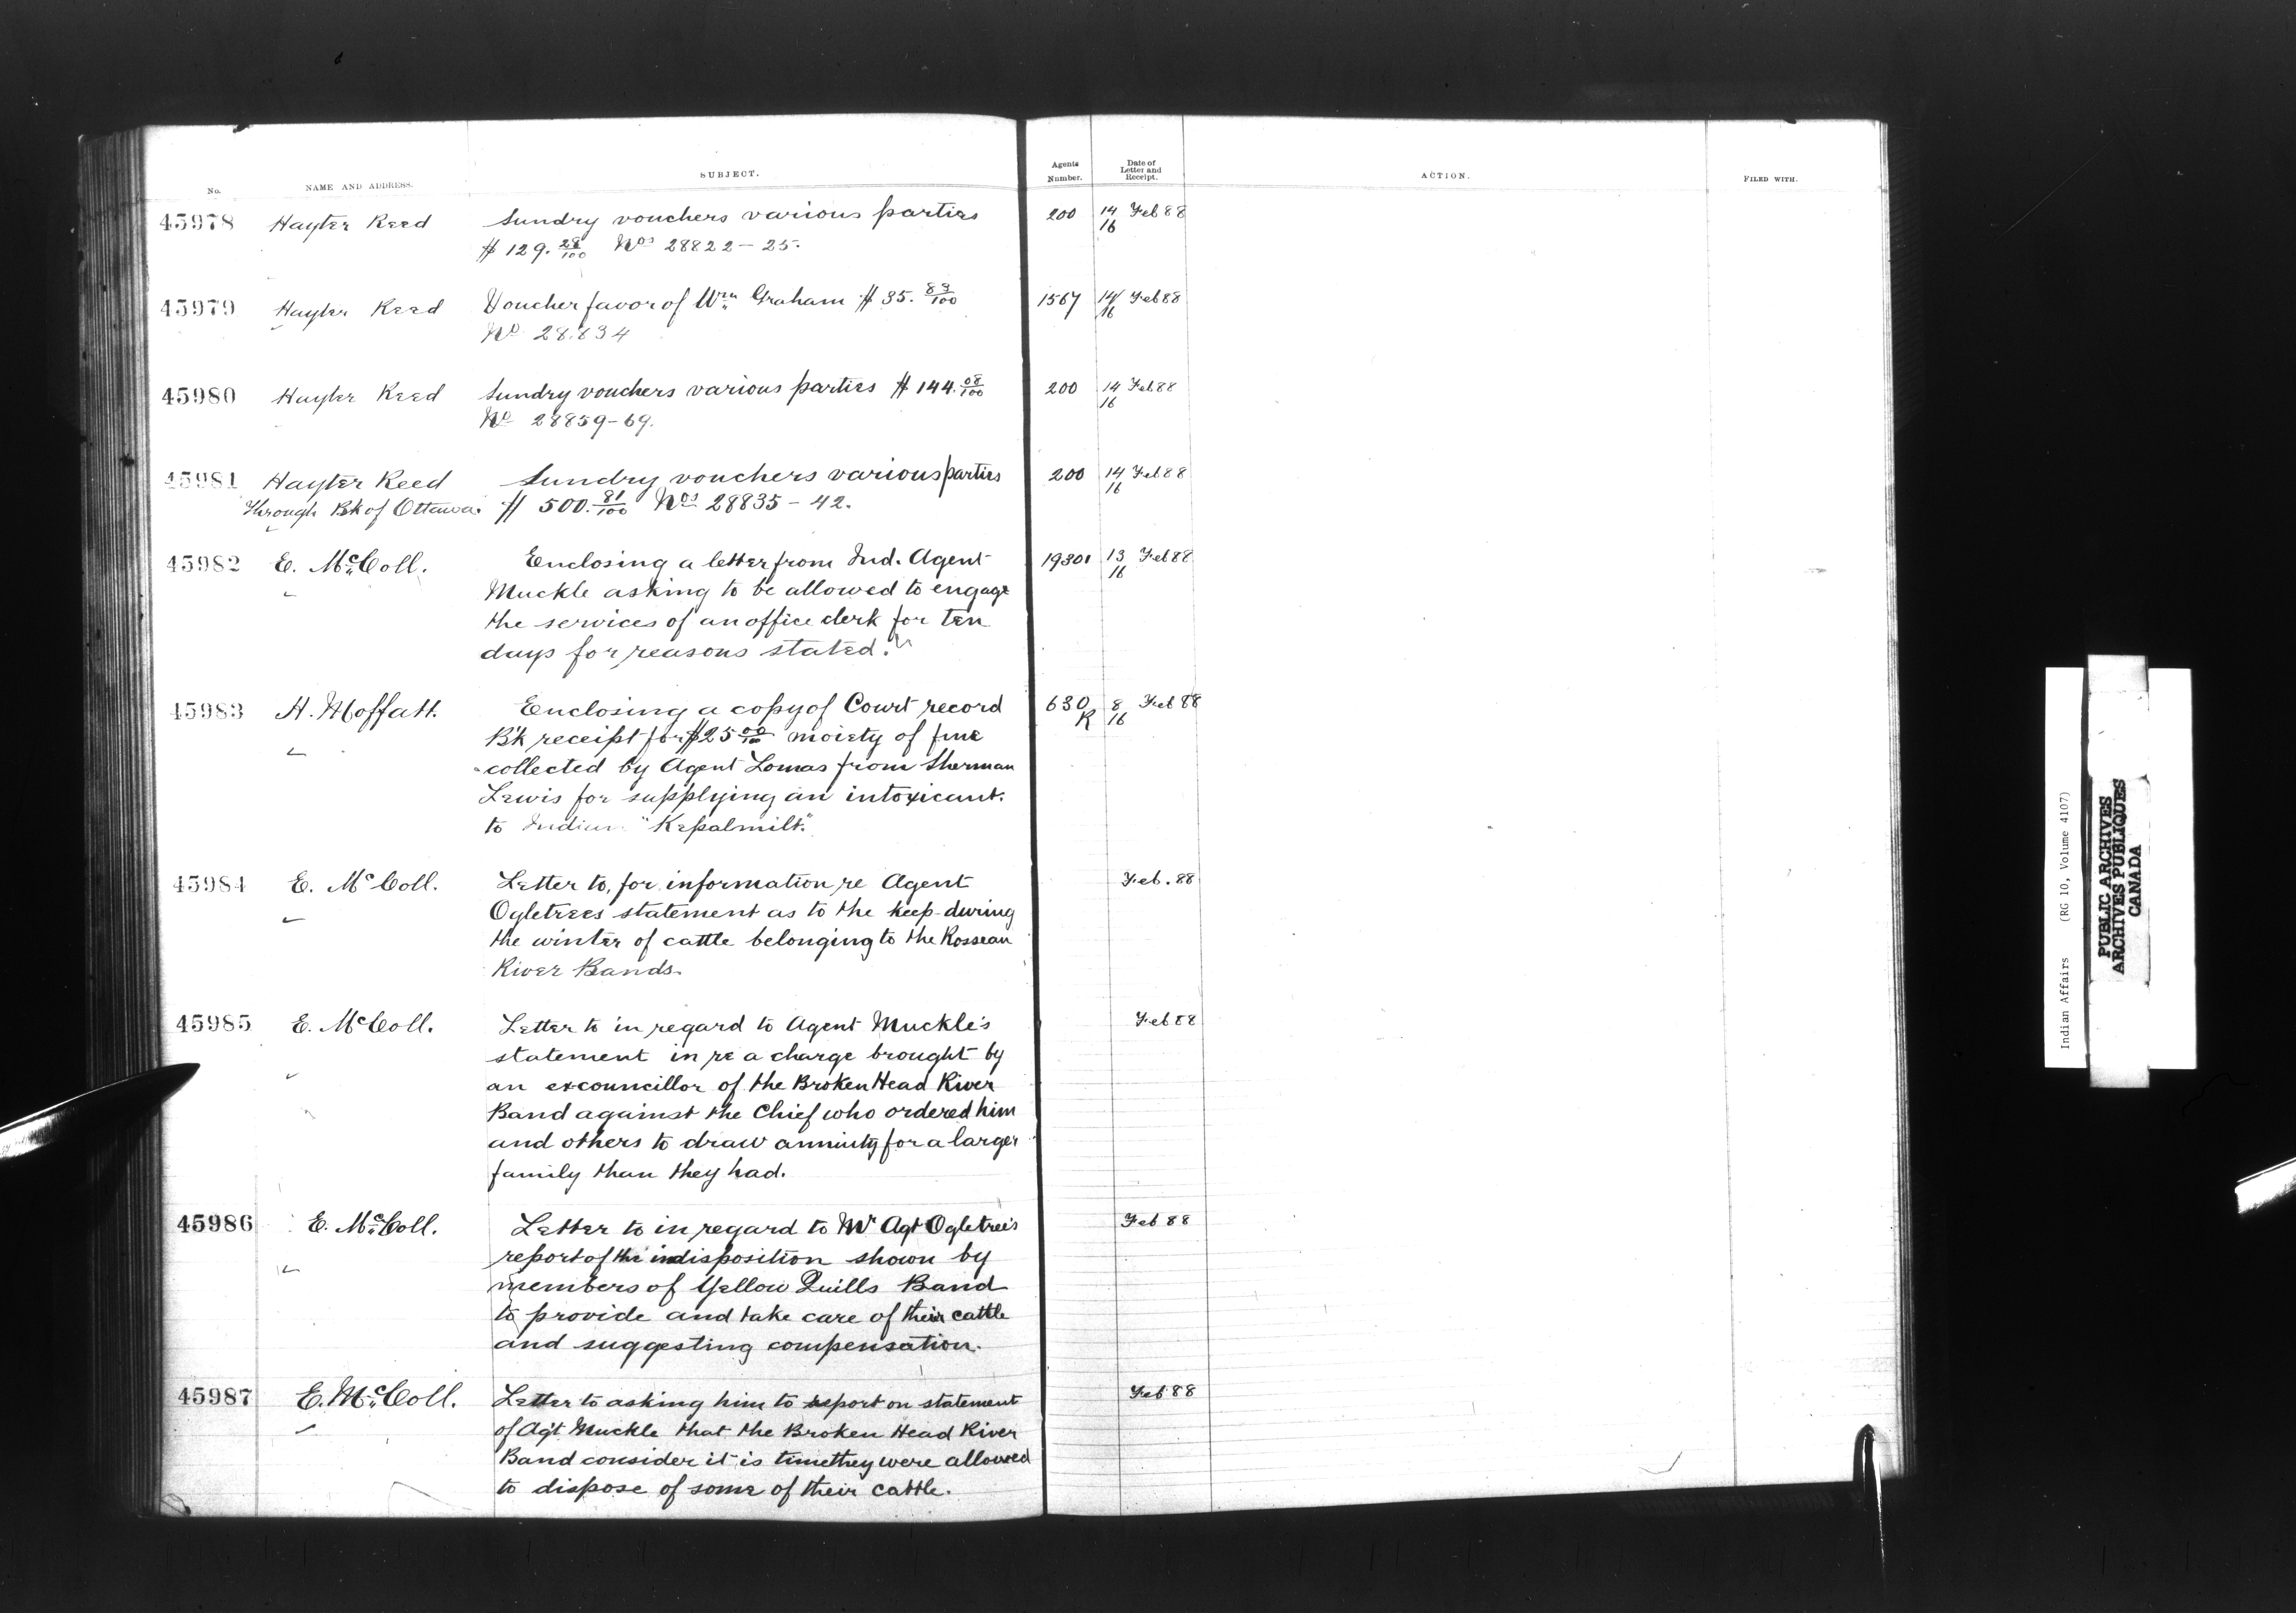 No.
NAME AND ADDRESS.
SUBJECT.
Agents Number.
Date of Letter and Receipt.
ACTION.
FILED WITH.
45978 Hayter Reed Sundry vouchers various parties 200 14 Feb 88
$129.28/100 Nos 28822-25. 16
45979 Hayter Reed Voucher favor of Wm Graham $35.83/100 1567 14 Feb 88
No 28834 16
45980 Hayter Reed Sundry vouchers various parties $144.08/100 200 14 Feb 88
No 28859-69. 16
45981 Hayter Reed Sundry vouchers various parties 200 14 Feb 88
Through Bk of Ottawa. $500.81/100 Nos 28835-42. 16
45982 E. McColl. Enclosing a letter from Ind. Agent 19301 13 Feb 88
Muckle asking to be allowed to engage 16
the services of an office clerk for ten
days for reasons stated.
45983 H. Moffatt. Enclosing a copy of Court record 630 8 Feb 88
Bk receipt for $25 00/100 moiety of fine R 16
collected by Agent Lomas from Sherman
Lewis for supplying an intoxicant.
to Indian "Kepalmilt."
45984 E. McColl. Letter to, for information re Agent Feb. 88
Ogletrees statement as to the keep during
the winter of cattle belonging to the Rosseau
River Bands.
45985 E. McColl. Letter to in regard to Agent Muckle's Feb 88
statement in re a charge brought by
an excouncillor of the Broken Head River
Band against the Chief who ordered him
and others to draw annuity for a larger
family than they had.
45986 E. McColl. Letter to in regard to Mr Agt Ogletree's Feb 88
report of the indisposition shown by
members of Yellow Quills Band
to provide and take care of their cattle
and suggesting compensation.
45987 E. McColl. Letter to asking him to report on statement Feb 88
of Agt Muckle that the Broken Head River
Band consider it is time they were allowed
to dispose of some of their cattle.
Indian Affairs (RG 10, Volume 4107)
PUBLIC ARCHIVES
ARCHIVES PUBLIQUES
CANADA